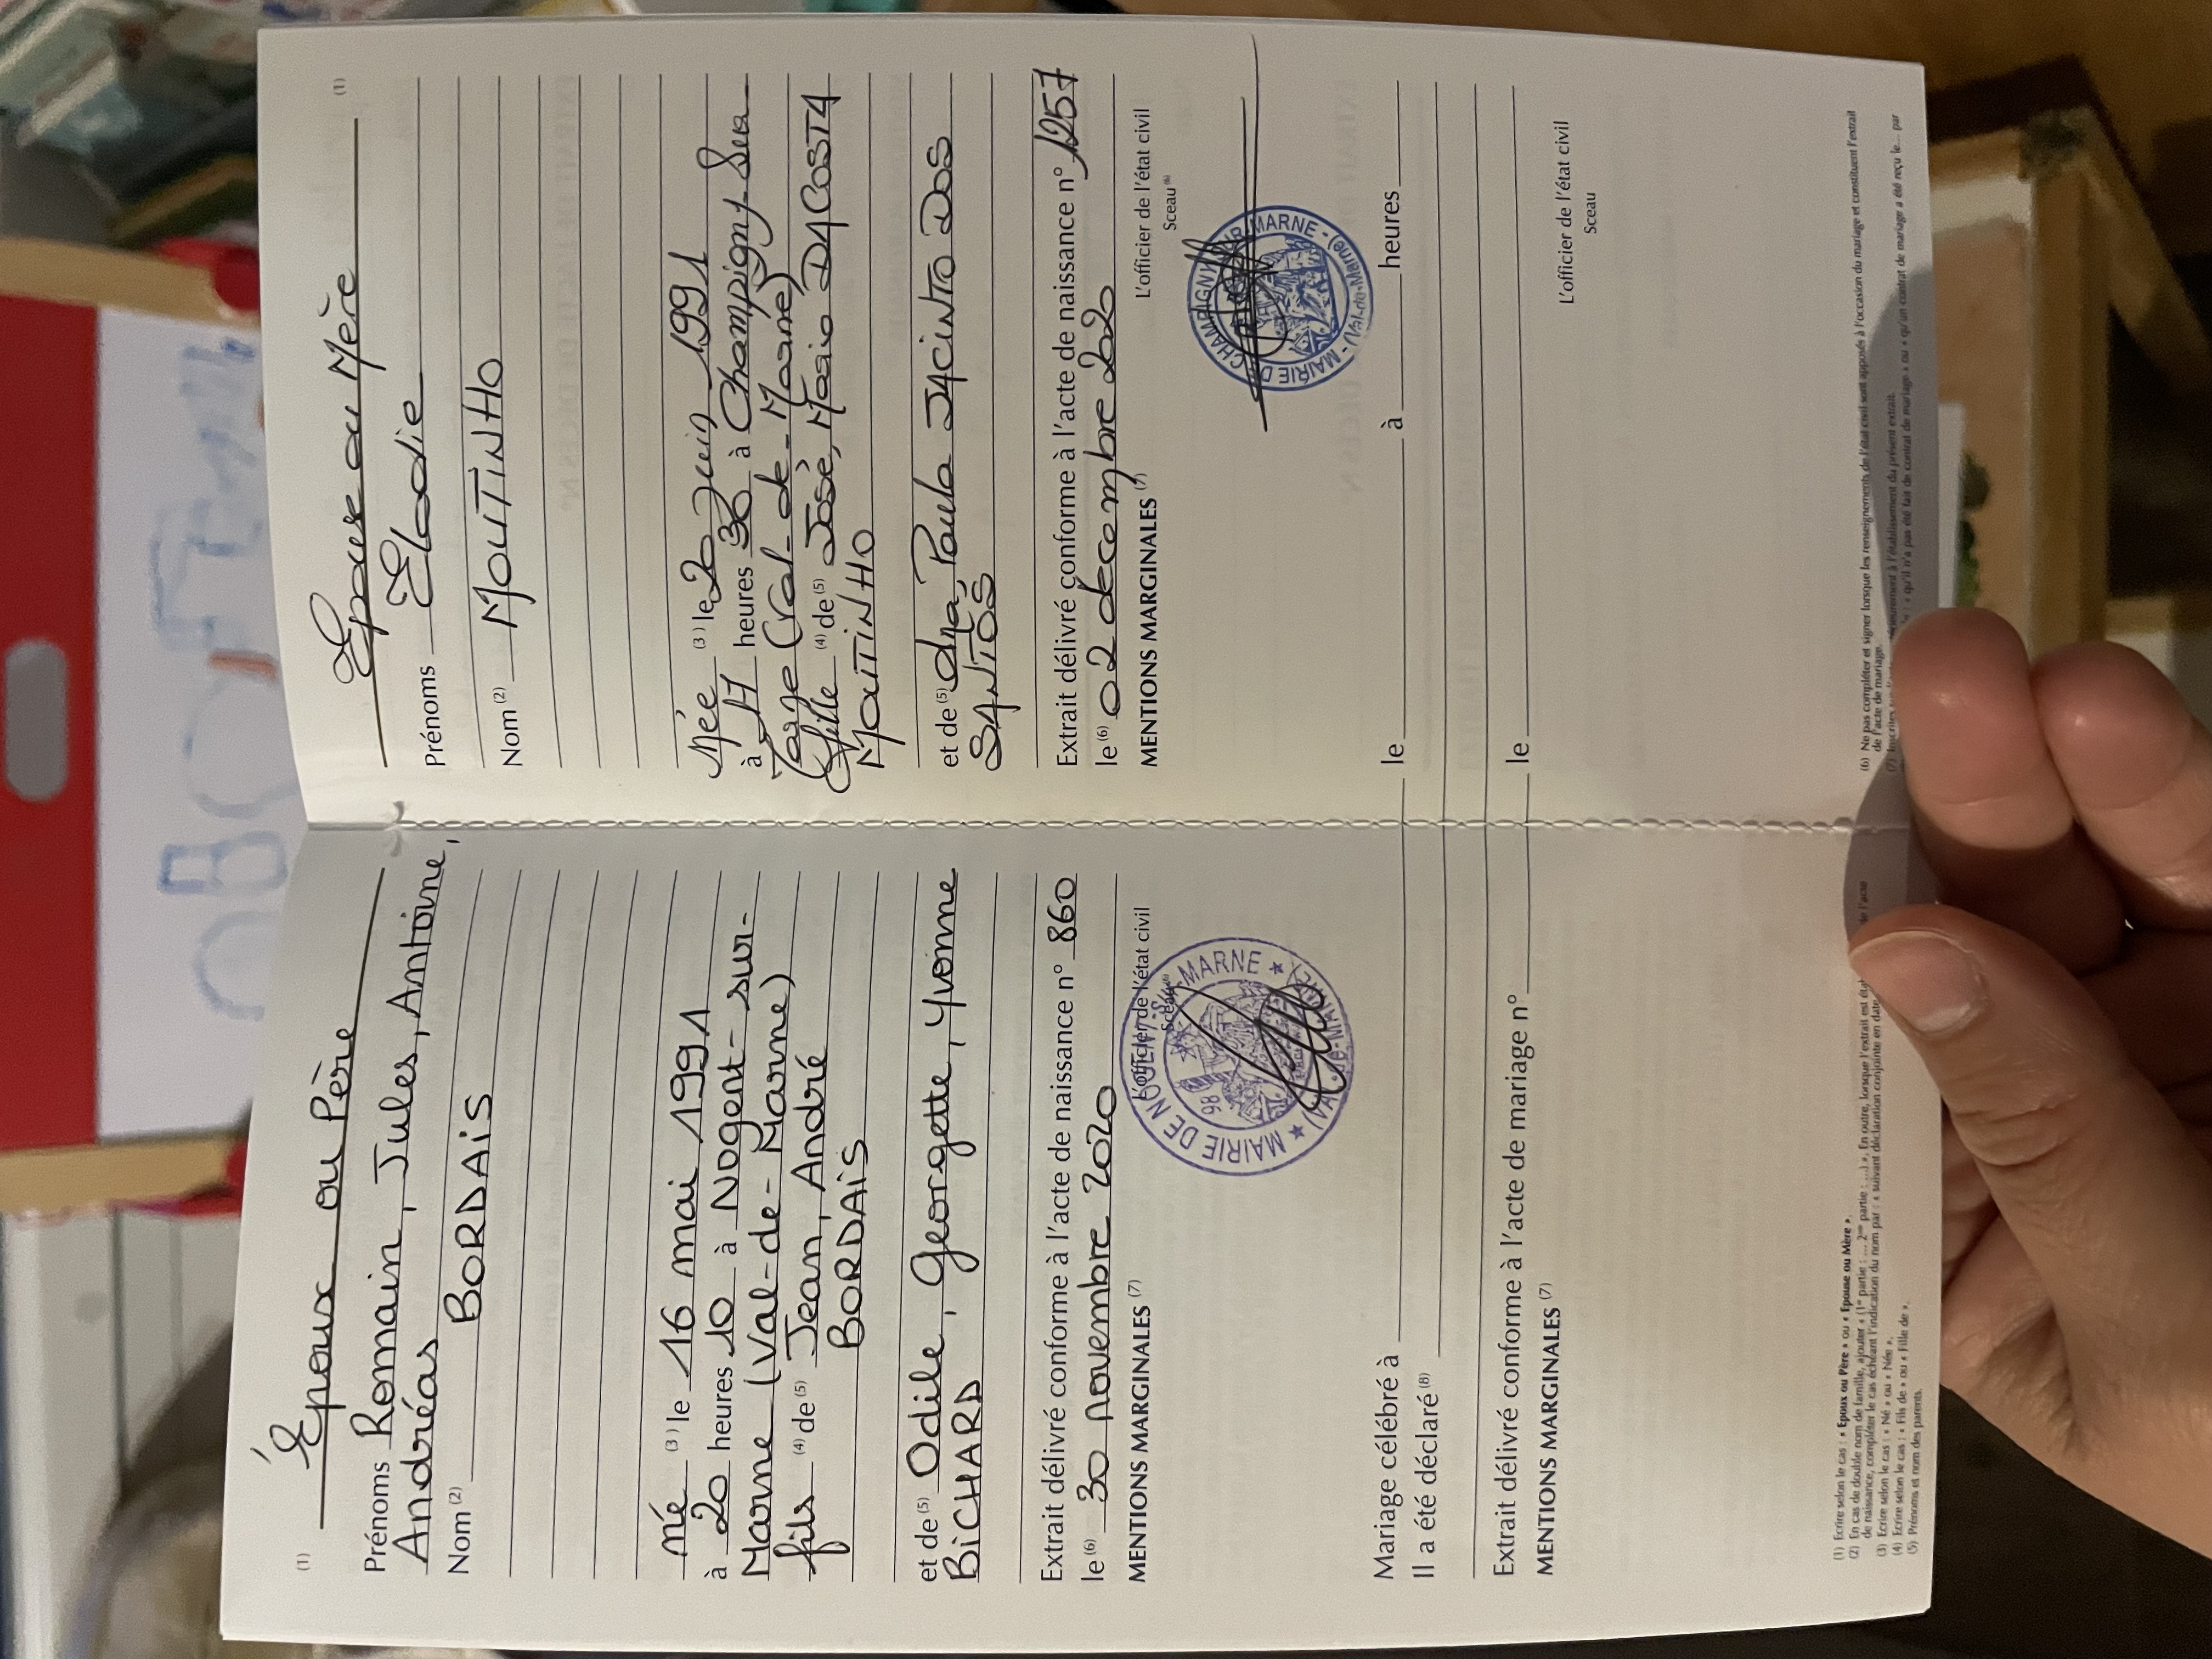 (1) Époux ou Père
Prénoms Romain, Jules, Antoine,
Andréas
Nom (2) BORDAIS
né (3) le 16 mai 1991
à 20 heures 10 à Nogent-sur-
Marne (Val-de-Marne)
fils (4) de (5) Jean, André
BORDAIS
et de (5) Odile, Georgette, Yvonne
BICHARD
Extrait délivré conforme à l'acte de naissance n° 860
le (6) 30 novembre 2020
L'officier de l'état civil
Sceau (6)
MENTIONS MARGINALES (7)
MAIRIE DE NOGENT-S/-MARNE
98
Épouse ou Mère (1)
Prénoms Elodie
Nom (2) MOUTINHO
Née (3) le 20 juin 1991
à 17 heures 30 à Champigny Sur
Marne (Val-de-Marne)
fille (4) de (5) José, Mario DA COSTA
MOUTINHO
et de (5) Ana, Paula JACINTO DOS
SANTOS
Extrait délivré conforme à l'acte de naissance n° 1257
le (6) 02 decembre 2020
L'officier de l'état civil
Sceau (6)
MENTIONS MARGINALES (7)
MAIRIE DE CHAMPIGNY-SUR-MARNE - (Val-de-Marne)
Mariage célébré à le à heures
Il a été déclaré (8)
Extrait délivré conforme à l'acte de mariage n° le
MENTIONS MARGINALES (7)
L'officier de l'état civil
Sceau
(1) Ecrire selon le cas : « Epoux ou Père » ou « Epouse ou Mère ».
(2) En cas de double nom de famille, ajouter « (1re partie : ... 2me partie : ...) ». En outre, lorsque l'extrait est de l'acte
de naissance, compléter le cas échéant l'indication du nom par : « suivant déclaration conjointe en date
(3) Ecrire selon le cas : « Né » ou « Née ».
(4) Ecrire selon le cas : « Fils de » ou « Fille de ».
(5) Prénoms et nom des parents.
(6) Ne pas compléter et signer lorsque les renseignements de l'état civil sont apposés à l'occasion du mariage et constituent l'extrait
de l'acte de mariage.
(7) Inscrites à l'établissement du présent extrait.
« qu'il n'a pas été fait de contrat de mariage » ou « qu'un contrat de mariage a été reçu le... par